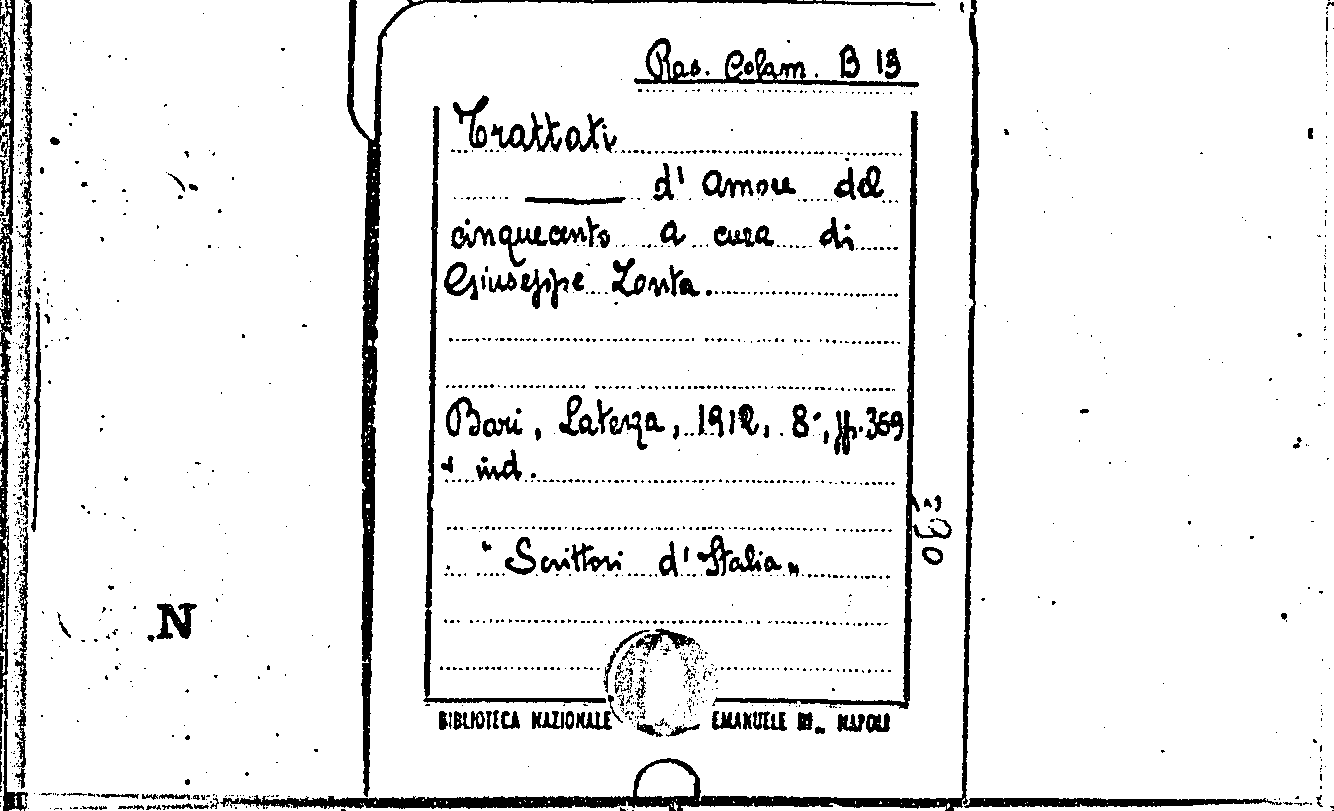 Ras. Colam. B 13
Trattati
d' Amore del
cinquecento a cura di
Giuseppe Zonta.
Bari, Laterza, 1912, 8°, pp. 369
+ ind.
"Scrittori d'Italia„
BIBLIOTECA NAZIONALE EMANUELE III„ NAPOLI
.N